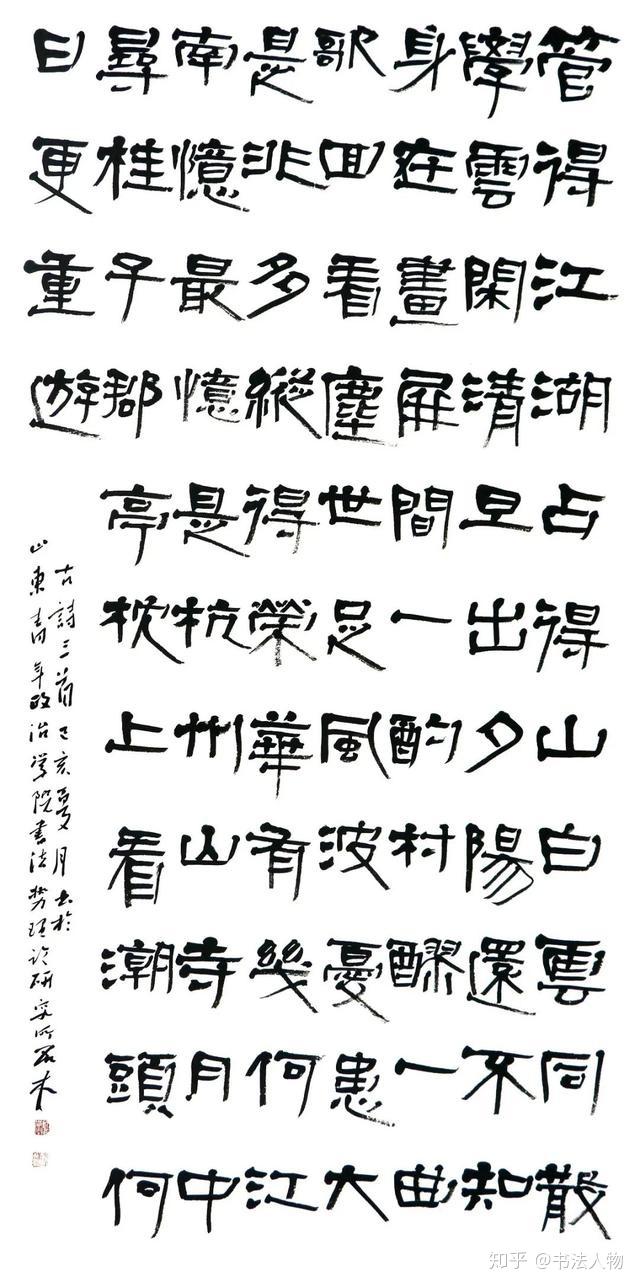 管得江湖占得山白雲同散
學雲閑清旦出夕陽還不知
身在畫屏間一酌村醪一曲
歌回看塵世足風波憂患大
是非多縱得榮華有幾何江
南憶最憶是杭州山寺月中
尋桂子郡亭枕上看潮頭何
日更重遊
古詩三首己亥夏月書於
山東青年政治學院書法理论研究所
知乎 @书法人物